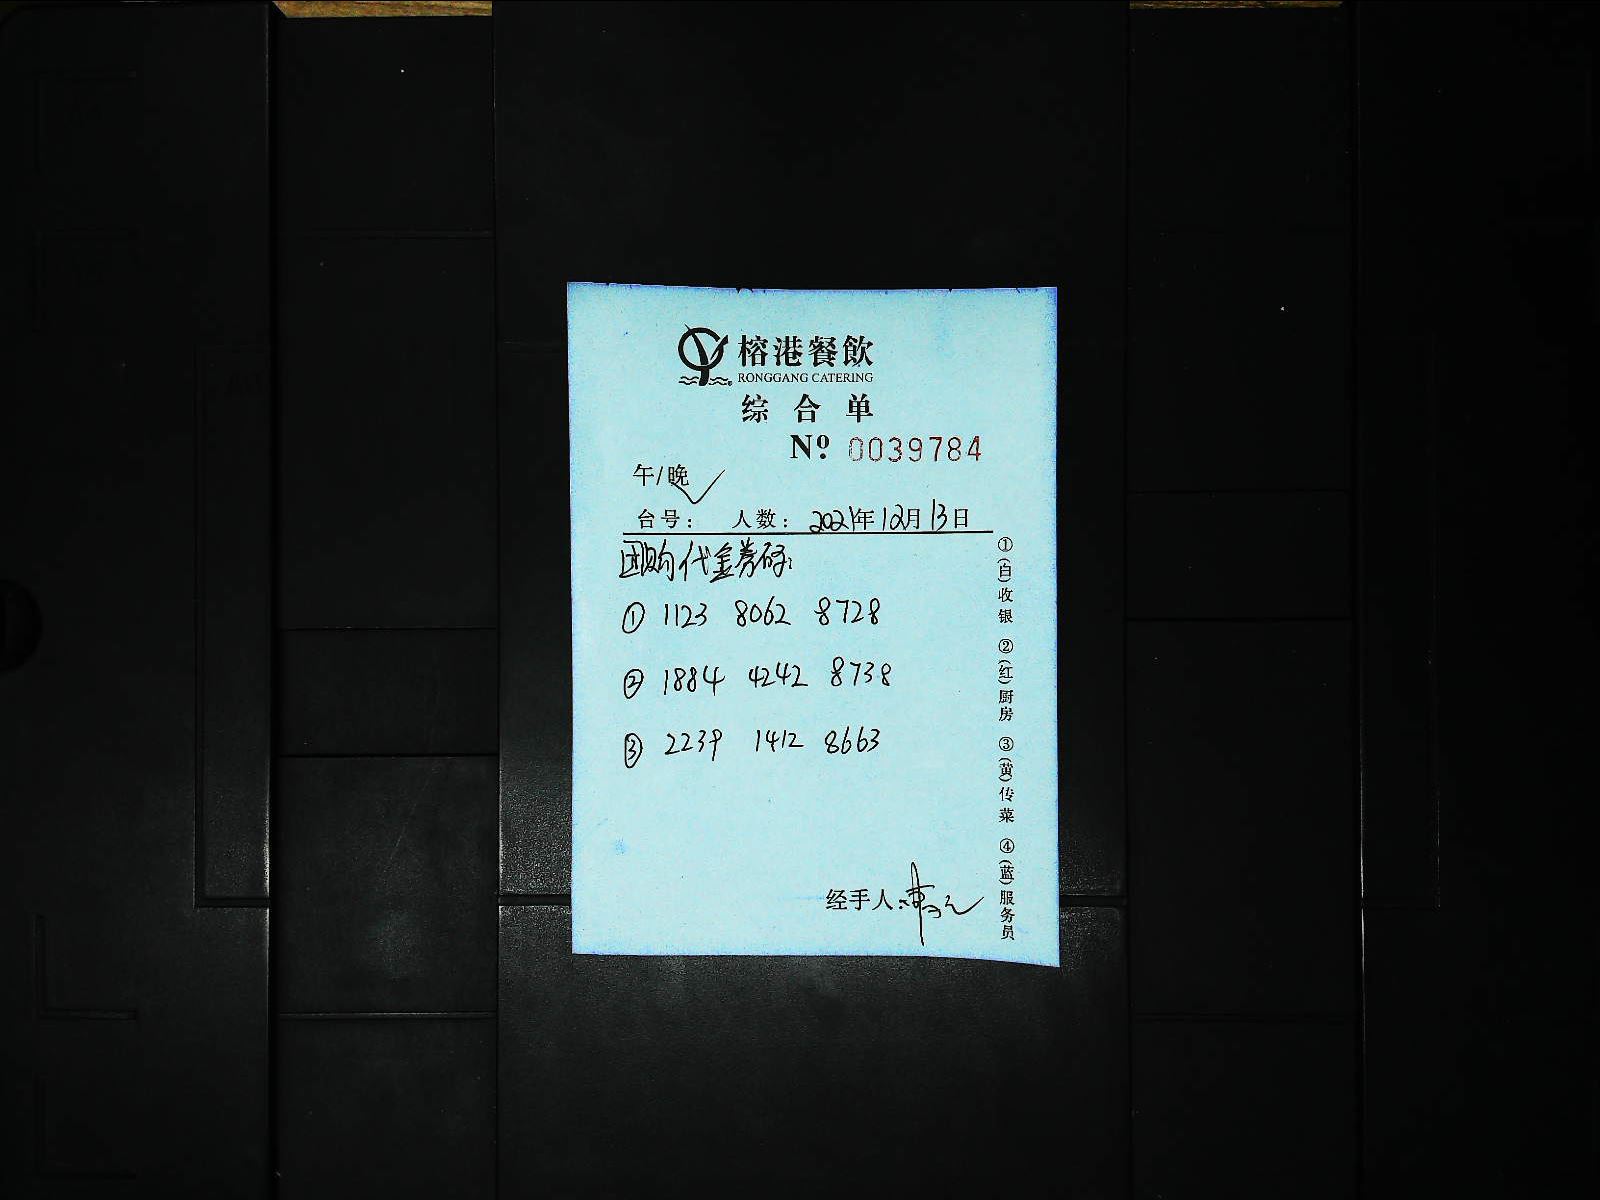 榕港餐飲
RONGGANG CATERING
综合单
Nº 0039784
午/晚
台号： 人数： 2021年12月13日
团购代金券码：
① 1123 8062 8728
② 1884 4242 8738
③ 2239 1412 8663
经手人：
①(白)收银 ②(红)厨房 ③(黄)传菜 ④(蓝)服务员